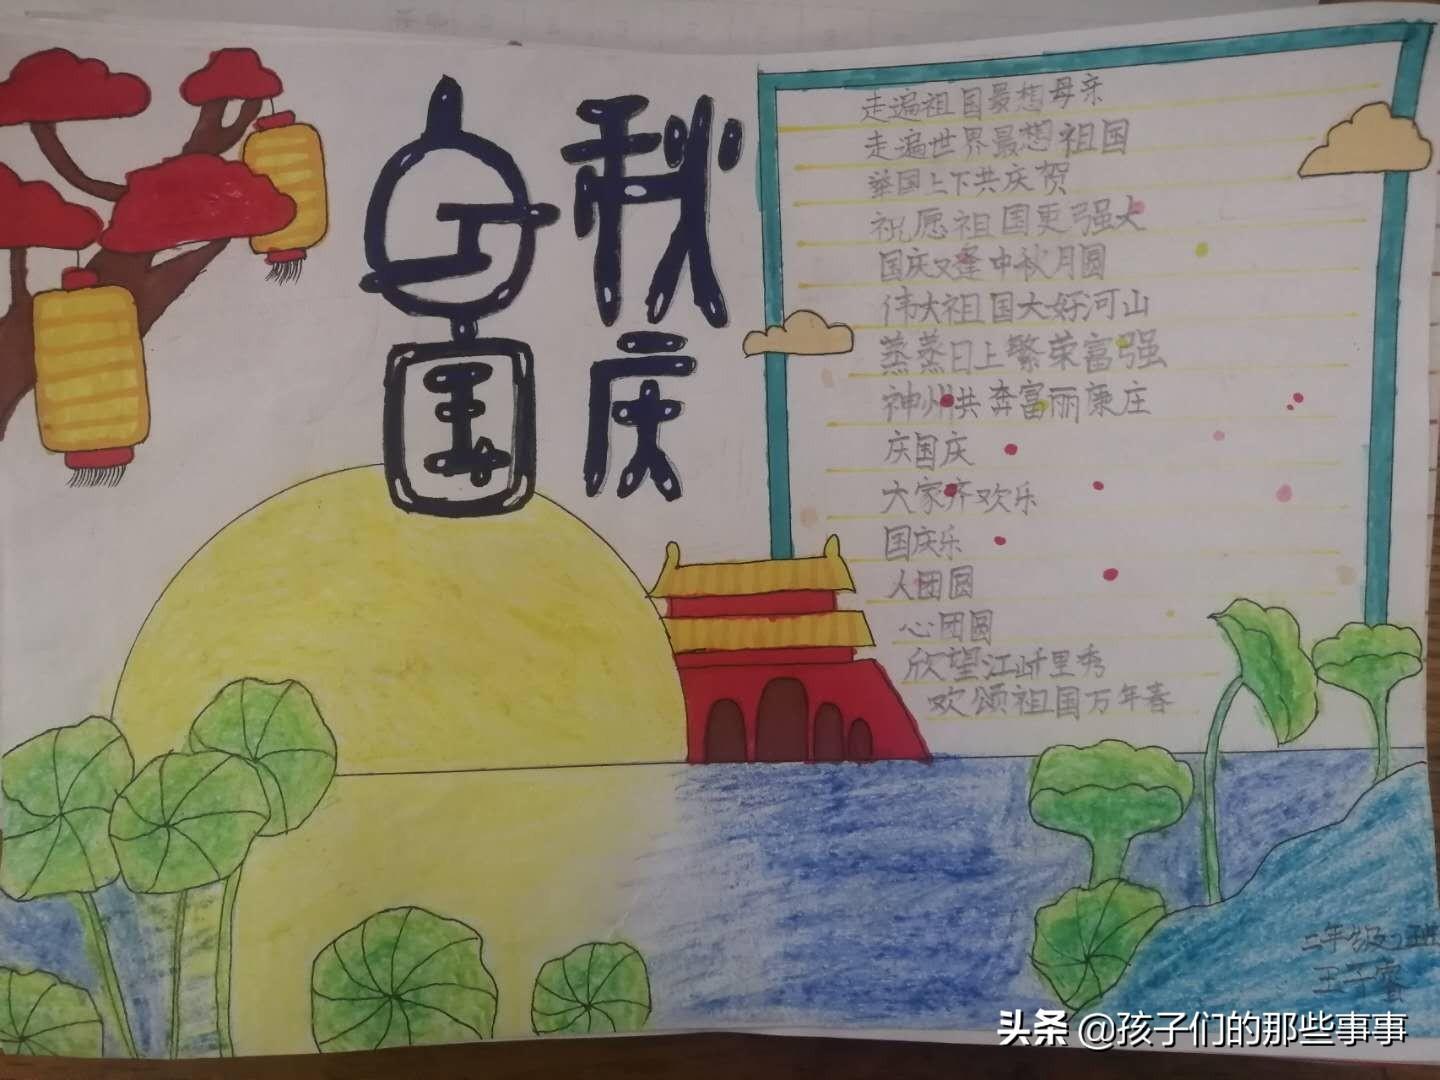 中秋
国庆
走遍祖国最想母亲
走遍世界最想祖国
举国上下共庆贺
祝愿祖国更强大
国庆又逢中秋月圆
伟大祖国大好河山
蒸蒸日上繁荣富强
神州共奔富丽康庄
庆国庆
大家齐欢乐
国庆乐
人团圆
心团圆
欣望江山千里秀
欢颂祖国万年春
二年级2班
头条 @孩子们的那些事事